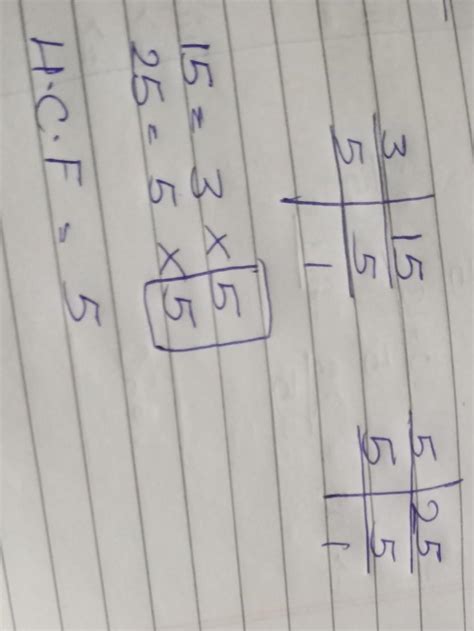 3 | 15
5 | 5
1
5 | 25
5 | 5
1
15 = 3 × 5
25 = 5 × 5
H.C.F = 5